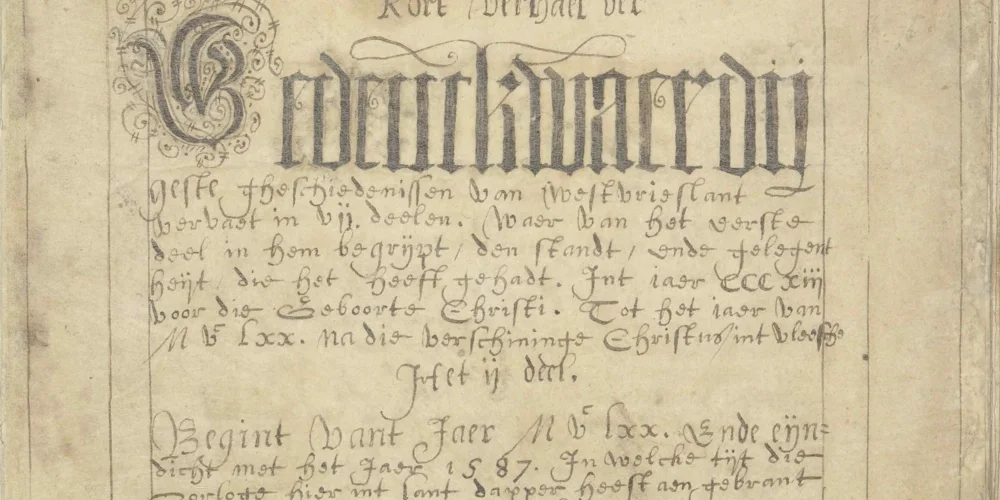 Kort verhael der
Gedenckwaerdij
geste gheschiedenissen van westvrieslant
vervaet in vij. deelen. Waer van het eerste
deel in hem begrijpt, den standt, ende gelegent
heijt, die het heeft gehadt. Int iaer CCC xiij
voor die Geboorte Christi. Tot het iaer van
M vᶜ lxx. na die verschininge Christus int vleesche
Het ij deel.
Begint vant Jaer M vᶜ lxx. Ende eijn=
dicht met het Jaer 1587. In welcke tijt die
Oorloge hier int lant dapper heeft aen gebrant